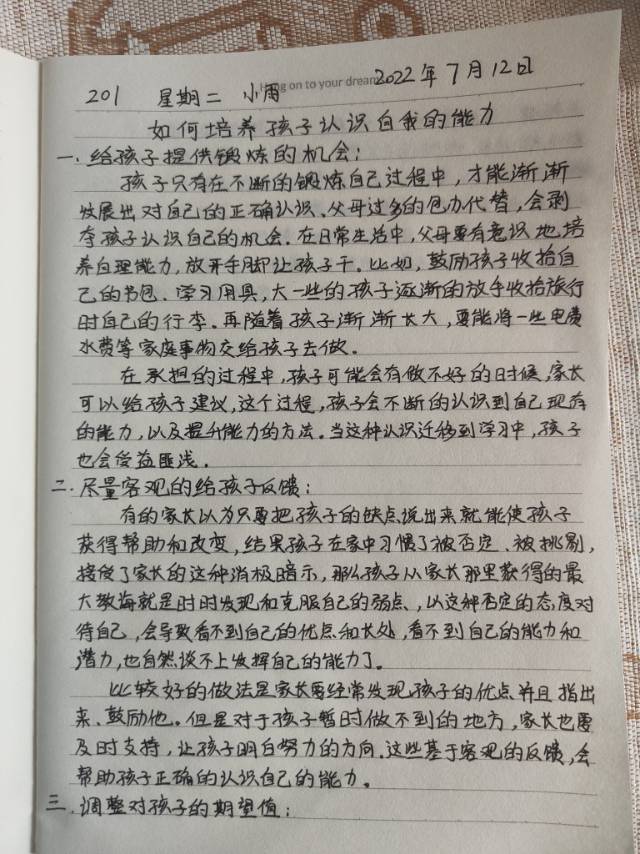 Hang on to your dream
201 星期二 小雨 2022年7月12日
如何培养孩子认识自我的能力
一.给孩子提供锻炼的机会:
孩子只有在不断的锻炼自己过程中,才能渐渐
发展出对自己的正确认识。父母过多的包办代替,会剥
夺孩子认识自己的机会。在日常生活中,父母要有意识地培
养自理能力,放开手脚让孩子干。比如,鼓励孩子收拾自
己的书包、学习用具,大一些的孩子逐渐的放手收拾旅行
时自己的行李。再随着孩子渐渐长大,要能将一些电费
水费等家庭事物交给孩子去做。
在承担的过程中,孩子可能会有做不好的时候,家长
可以给孩子建议,这个过程,孩子会不断的认识到自己现有
的能力,以及提升能力的方法。当这种认识迁移到学习中,孩子
也会受益匪浅。
二.尽量客观的给孩子反馈:
有的家长以为只要把孩子的缺点说出来就能使孩子
获得帮助和改变,结果孩子在家中习惯了被否定、被挑剔,
接受了家长的这种消极暗示,那么孩子从家长那里获得的最
大教诲就是时时发现和克服自己的弱点、以这种否定的态度对
待自己,会导致看不到自己的优点和长处,看不到自己的能力和
潜力,也自然谈不上发挥自己的能力了。
比较好的做法是家长要经常发现孩子的优点并且指出
来、鼓励他。但是对于孩子暂时做不到的地方,家长也要
及时支持,让孩子明白努力的方向。这些基于客观的反馈,会
帮助孩子正确的认识自己的能力。
三.调整对孩子的期望值: